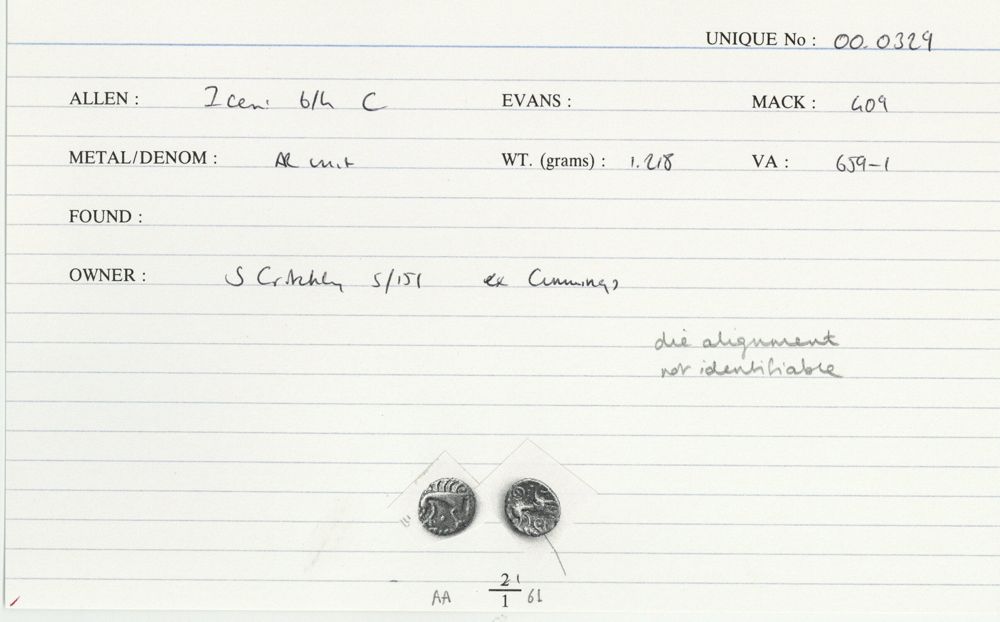 UNIQUE No : 00.0329
ALLEN : Iceni b/h C EVANS : MACK : 409
METAL/DENOM : AR unit WT. (grams) : 1.218 VA : 659-1
FOUND :
OWNER : S Critchley S/151 ex Cummings
die alignment
not identifiable
21
AA 1 61